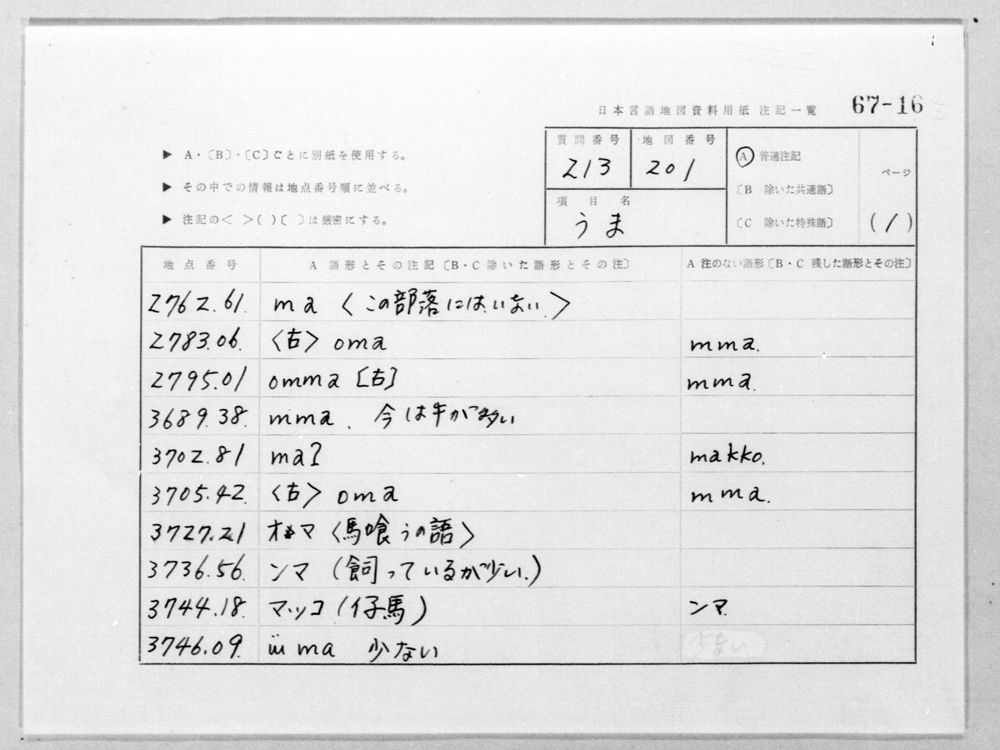 日本言語地図資料用紙 注記一覧 67-16
▶ A・〔B〕・〔C〕ごとに別紙を使用する。
▶ その中での情報は地点番号順に並べる。
▶ 注記の< >( )〔 〕は厳密にする。
質問番号 213
地図番号 201
項目名 うま
A 普通注記
〔B 除いた共通語〕
〔C 除いた特殊語〕
ページ (1)
地点番号 A 語形とその注記〔B・C 除いた語形とその注〕 A 注のない語形〔B・C 残した語形とその注〕
2762.61. ma 〈この部落にはいない.〉
2783.06. 〈古〉 oma mma.
2795.01 omma [古] mma.
3689.38. mma. 今は牛が多い
3702.81 maʔ makko.
3705.42. 〈古〉 oma mma.
3727.21 オマ〈馬喰うの語〉
3736.56. ンマ (飼っているが少い.)
3744.18. マッコ (仔馬) ンマ.
3746.09. ma 少ない